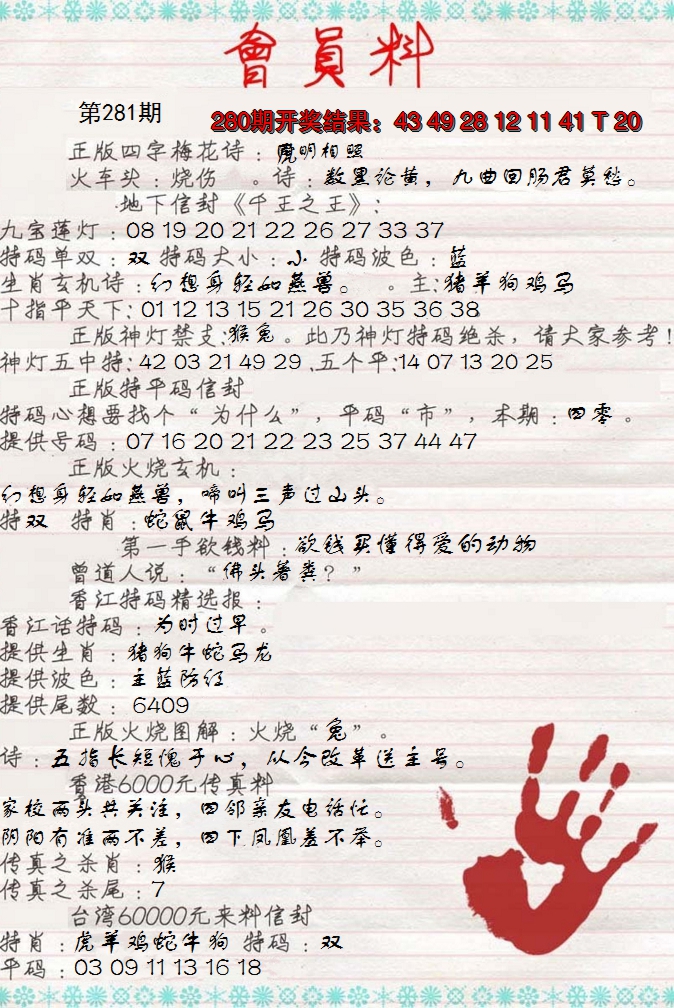 會員料
第281期
280期开奖结果：43 49 28 12 11 41 T 20
正版四字梅花诗：虎明相照
火车头：烧伤 。诗：数黑论黄，九曲回肠君莫愁。
地下信封《千王之王》：
九宝莲灯：08 19 20 21 22 26 27 33 37
特码单双：双 特码大小：小 特码波色：蓝
生肖玄机诗：幻想身轻如燕兽。 。主:猪羊狗鸡马
十指平天下:01 12 13 15 21 26 30 35 36 38
正版神灯禁支:猴兔。此乃神灯特码绝杀，请大家参考！
神灯五中特:42 03 21 49 29 .五个平:14 07 13 20 25
正版特平码信封
特码心想要找个“为什么”，平码“市”，本期：四零。
提供号码：07 16 20 21 22 23 25 37 44 47
正版火烧玄机：
幻想身轻如燕兽，啼叫三声过山头。
特双 特肖：蛇鼠牛鸡马
第一手欲钱料：欲钱买懂得爱的动物
曾道人说：“佛头著粪？”
香江特码精选报：
香江话特码：为时过早。
提供生肖：猪狗牛蛇马龙
提供波色：主蓝防红
提供尾数：6409
正版火烧图解：火烧“兔”。
诗：五指长短愧于心，从今改革送主号。
香港6000元传真料
家校两头共关注，四邻亲友电话忙。
阴阳有准两不差，四下凤凰羞不举。
传真之杀肖：猴
传真之杀尾：7
台湾60000元来料信封
特肖：虎羊鸡蛇牛狗 特码：双
平码：03 09 11 13 16 18